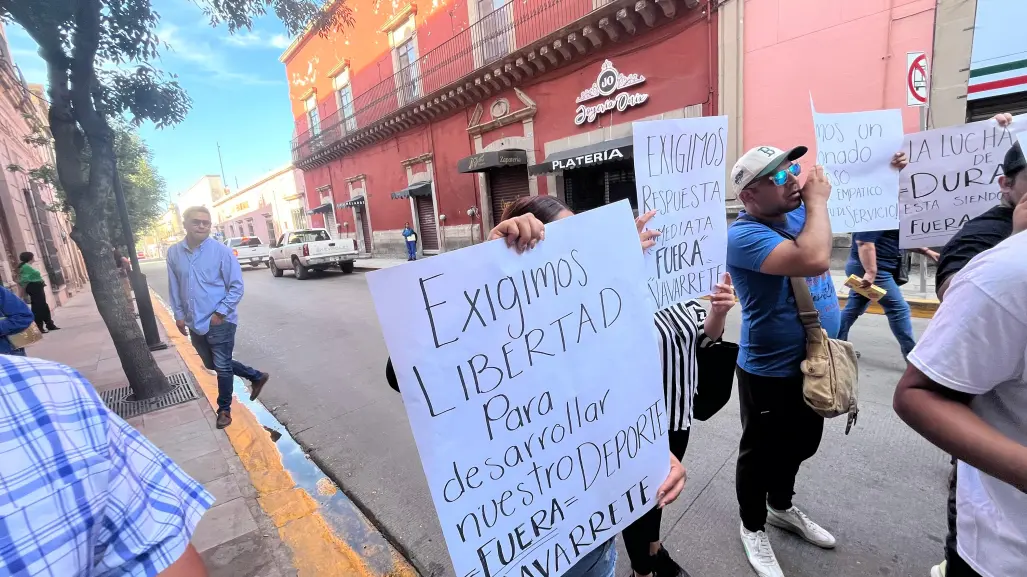 JO
Joyería Osiv
PLATERÍA
Exigimos
LIBERTAD
Para
desarrollar
nuestro DEPORTE
=FUERA=
NAVARRETE
EXIGIMOS
RESPUESTA
"FUERA"
NAVARRETE
B
MOS UN
EMPATICO
SERVICIO
LA LUCHA
DE
DURA
ESTA SIENDO
FUERA